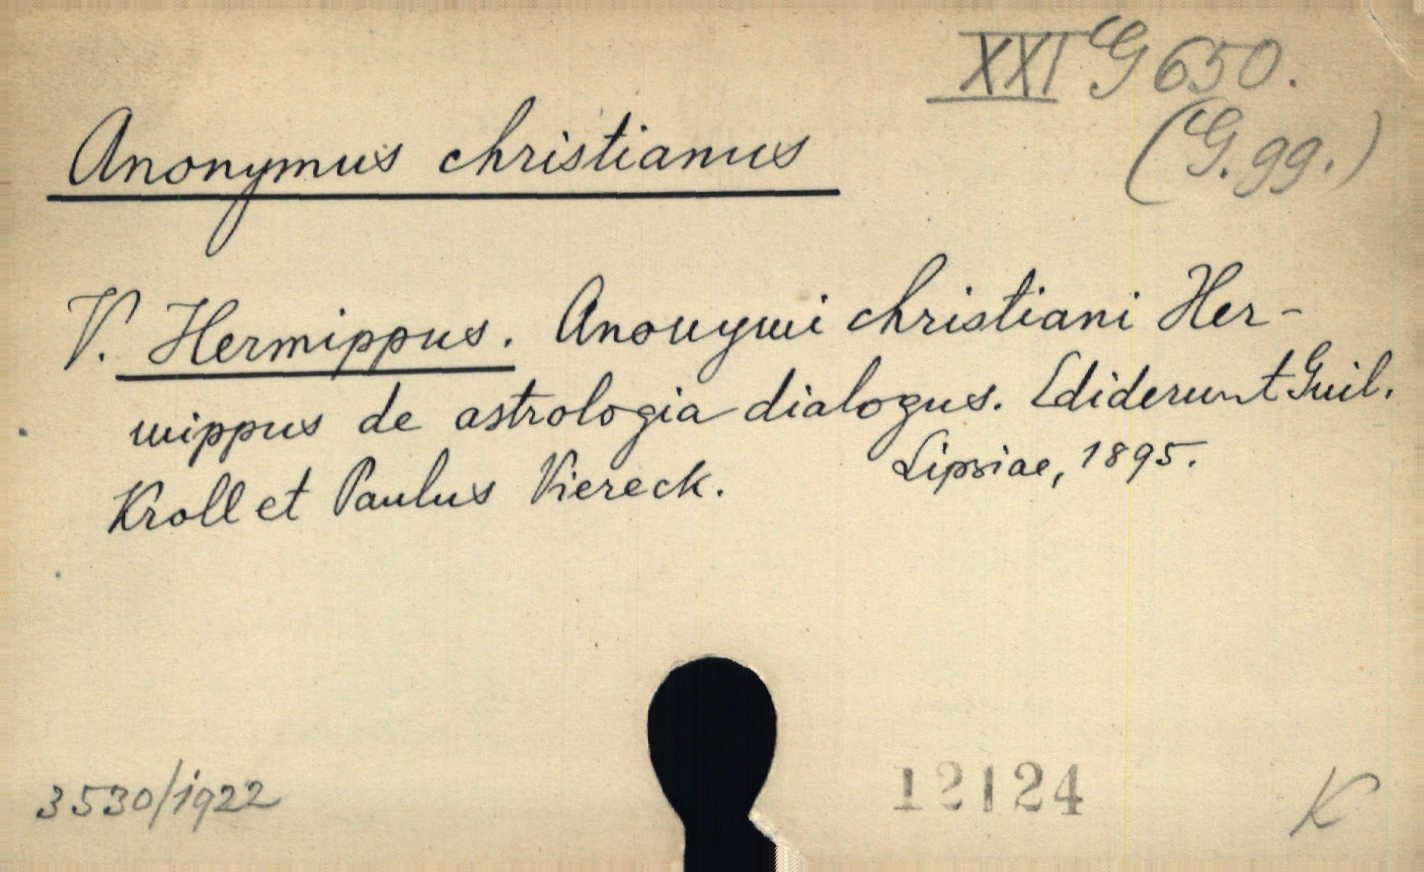 XXI G 650.
(G. gg.)
Anonymus christianus
V. Hermippus. Anonymi christiani Her-
mippus de astrologia dialogus. Ediderunt Guil.
Kroll et Paulus Viereck. Lipsiae, 1895.
3530/1922
12124
K